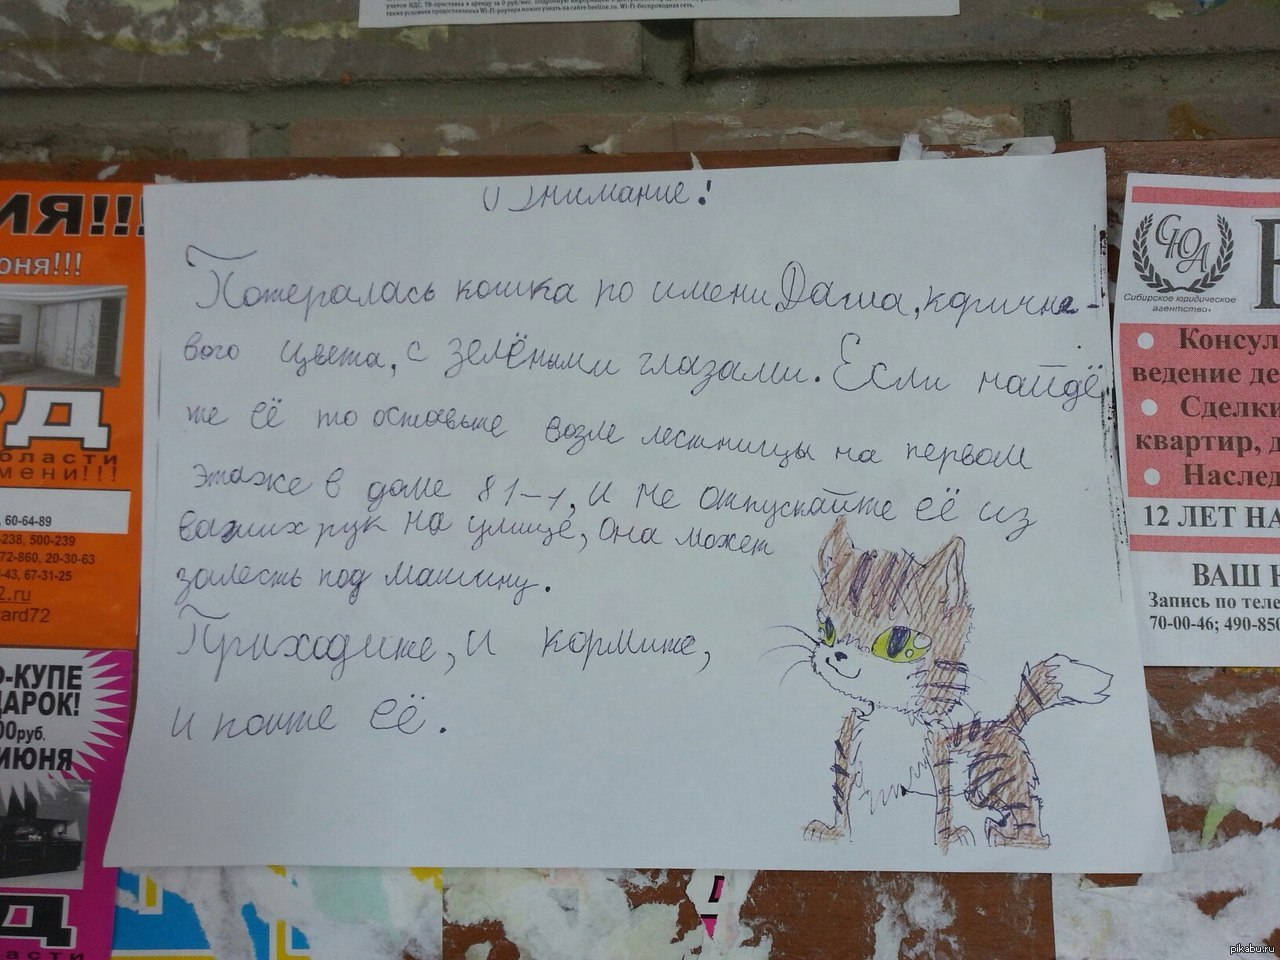 учетом НДС. ТВ-приставка в аренду за 0 руб/мес.
также условия предоставления Wi-Fi-роутера можно узнать на сайте beeline.ru. Wi-Fi-беспроводная сеть.
Внимание!
Потералась кошка по имени Даша, коричне-
вого цвета, с зелёными глазами. Если найдё
те её то оставьте возле лестницы на первом
этаже в доме 81-1, и не отпускайте её из
ваших рук на улице, она может
залесть под машину.
Приходите, и кормите,
и поите её.
ИЯ!!!
юня!!!
РД
области
мени!!!
, 60-64-89
-238, 500-239
72-860, 20-30-63
-43, 67-31-25
2.ru
tard72
О-КУПЕ
ДАРОК!
00руб.
ИЮНЯ
Д
асти
СЮА
Сибирское юридическое
агентство
Консул
ведение де
Сделки
квартир, д
Наслед
12 ЛЕТ НА
ВАШ
Запись по теле
70-00-46; 490-850
pikabu.ru